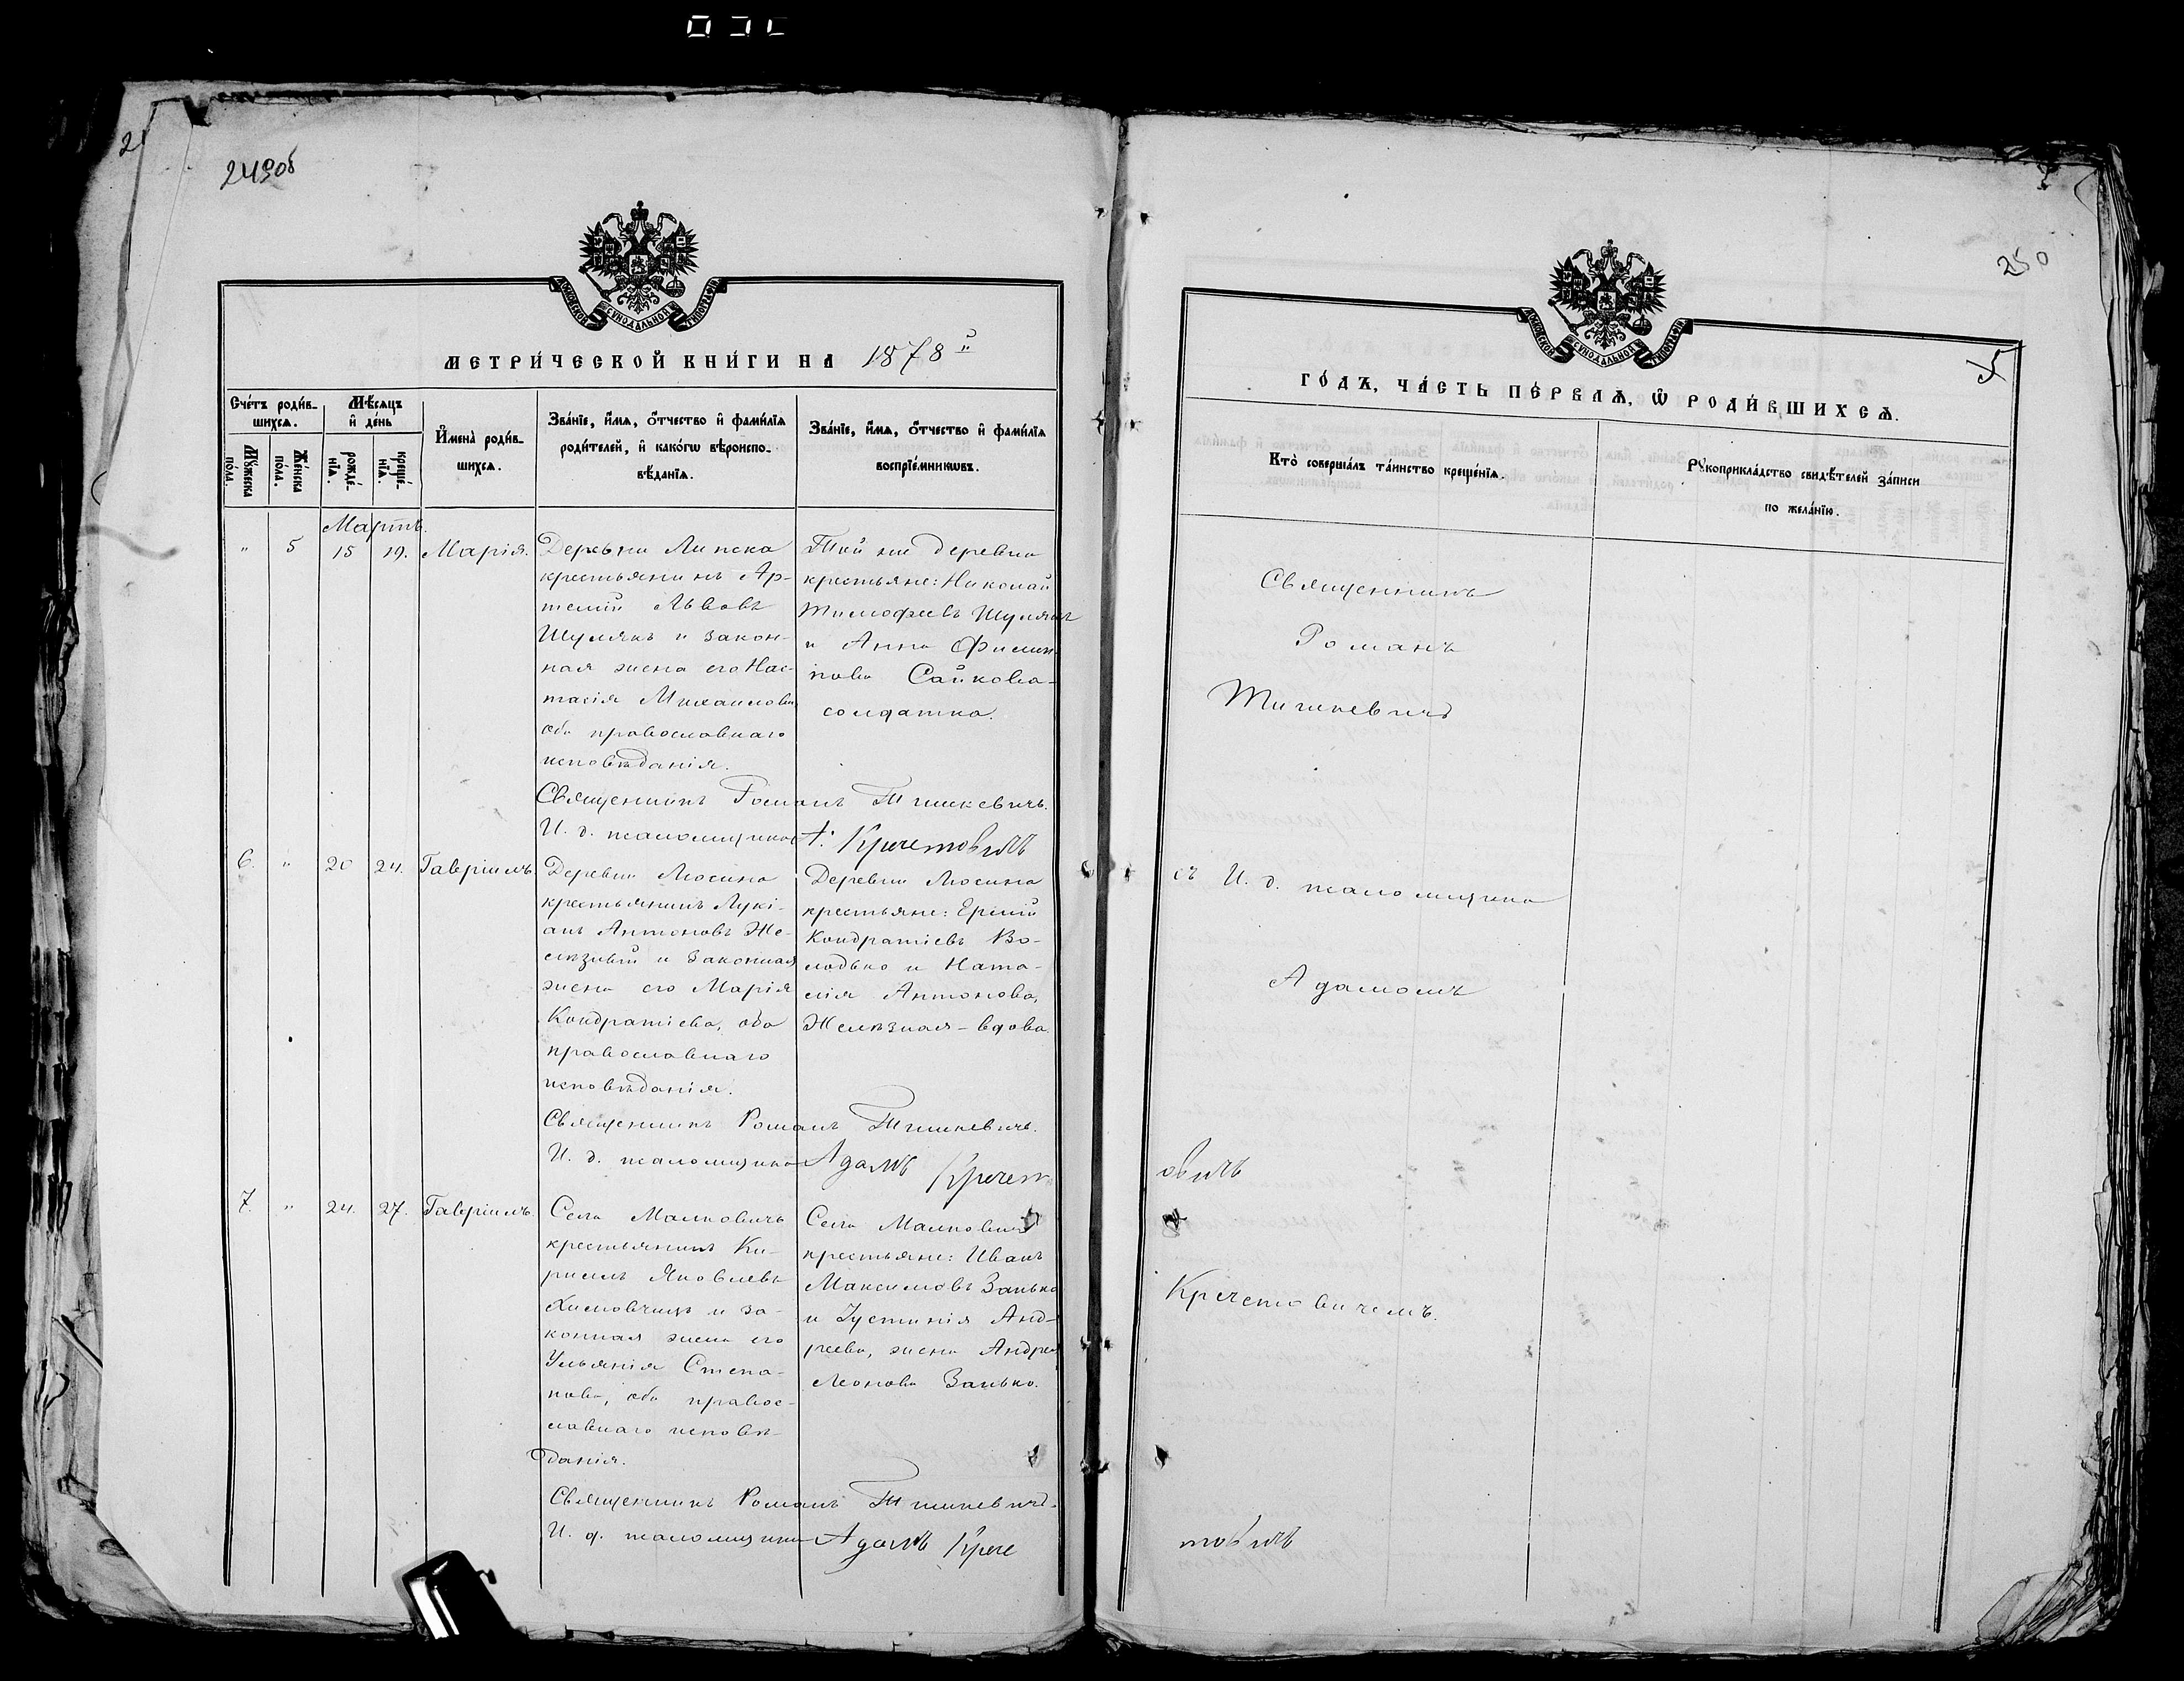 249об
250
5
МОСКОВСКОЙ СУНОДАЛЬНОЙ ТИПОГРАФІИ
МЕТРИ́ЧЕСКОЙ КНИ́ГИ НА 1878 й
Сче́тъ роди́в-
шихсѧ.
Мѣ́сѧцъ
и҆ де́нь
Мꙋ́жеска
пола.
Же́нска
по́ла.
рожде́-
нїѧ.
креще́-
нїѧ.
И҆мена̀ роди́в-
шихсѧ.
Зва́нїе, и҆́мѧ, ѻ҆́тчество и҆ фами́лїѧ
роди́телей, и҆ како́гѡ вѣроиспо-
вѣ́данїѧ.
Зва́нїе, и҆́мѧ, ѻ҆́тчество и҆ фами́лїѧ
воспрїе́мникѡвъ.
Мартъ.
" 5 15 19. Марія.
Деревни Липска
крестьянинъ Ар-
темій Львовъ
Шулякъ и закон-
ная жена его Нас-
тасія Михаилова
оба православнаго
исповѣданія.
Той же деревни
крестьяне: Николай
Тимофеевъ Шулякъ
и Анна Филип-
пова Сайкова-
солдатка.
Священникъ Романъ Тишкевичъ.
И. д. псаломщика А. Кречетовичъ
6. " 20 24. Гавріилъ.
Деревни Люсина
крестьянинъ Лукі-
анъ Антоновъ Же-
лѣзный и законная
жена его Марія
Кондратіева, оба
православнаго
исповѣданія.
Деревни Люсина
крестьяне: Ермій
Кондратіевъ Во-
лодько и Ната-
лія Антонова,
Желѣзная - вдова.
Священникъ Романъ Тишкевичъ.
И. д. псаломщика Адамъ Кречет
овичъ
7. " 24. 27. Гавріилъ.
Села Малковичъ
крестьянинъ Ки-
риллъ Яковлевъ
и за-
конная жена его
Ульянія Степа-
нова, оба правос-
лавнаго исповѣ-
данія.
Села Малковичъ
крестьяне: Иванъ
Максимовъ Занько
и Іустинія Анд-
реева, жена Андрея
Леонова Занько.
Священникъ Романъ Тишкевичъ.
И. д. псаломщика Адамъ Крече
товичъ
МОСКОВСКОЙ СУНОДАЛЬНОЙ ТИПОГРАФІИ
ГО́ДЪ, ЧА́СТЬ ПЕ́РВАѦ, Ѡ҆ РОДИ́ВШИХСѦ.
Кто̀ соверша́лъ та́инство креще́нїѧ.
Рꙋкоприкла́дство свидѣ́телей за́писи
по жела́нїю.
Священникъ
Романъ
Тишкевичъ
съ И. д. псаломщика
Адамомъ
Кречетовичемъ.